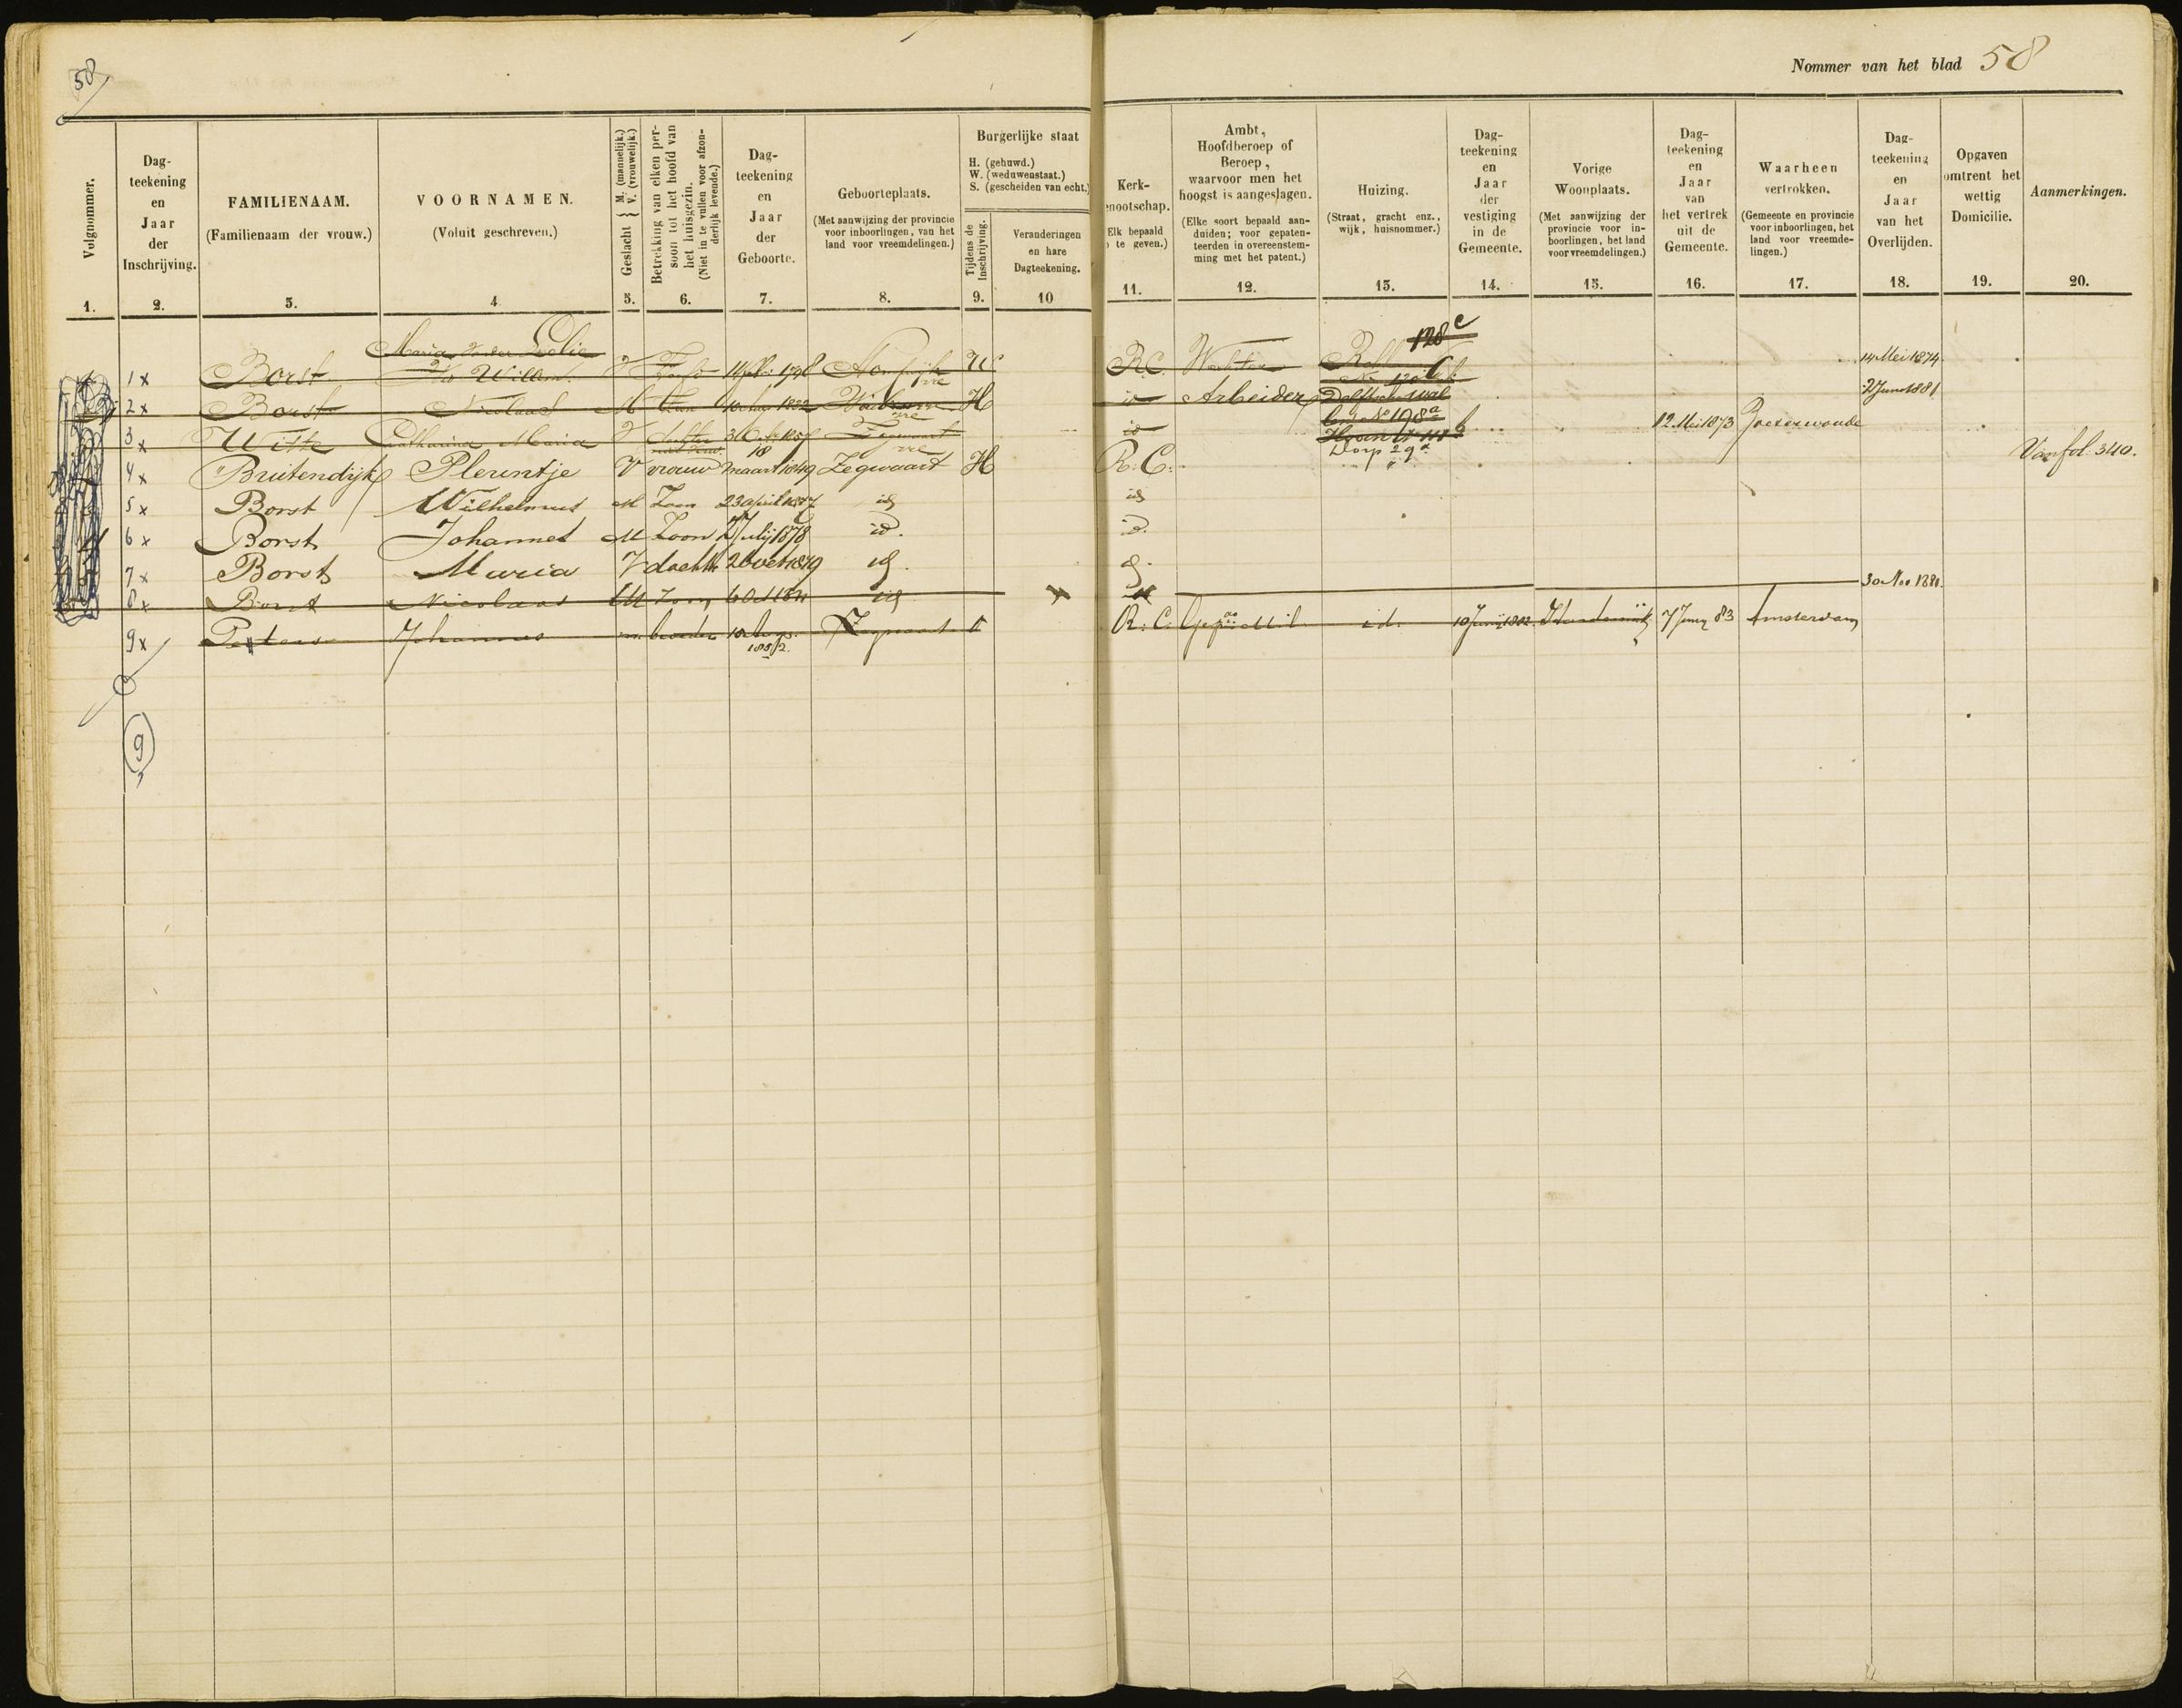 58
Nommer van het blad 58
Volgnommer.
1.
Dag-
teekening
en
Jaar
der
Inschrijving.
2.
FAMILIENAAM.
(Familienaam der vrouw.)
3.
VOORNAMEN.
(Voluit geschreven.)
4
Geslacht { M. (mannelijk.) V. (vrouwelijk.)
5.
Betrekking van elken per-
soon tot het hoofd van
het huisgezin.
(Niet in te vullen voor afzon-
derlijk levende.)
6.
Dag-
teekening
en
Jaar
der
Geboorte.
7.
Geboorteplaats.
(Met aanwijzing der provincie
voor inboorlingen, van het
land voor vreemdelingen.)
8.
Burgerlijke staat
H. (gehuwd.)
W. (weduwenstaat.)
S. (gescheiden van echt.)
Tijdens de
Inschrijving.
9.
Veranderingen
en hare
Dagteekening.
10
Kerk-
nootschap.
Elk bepaald
te geven.)
11.
Ambt,
Hoofdberoep of
Beroep,
waarvoor men het
hoogst is aangeslagen.
(Elke soort bepaald aan-
duiden; voor gepaten-
teerden in overeenstem-
ming met het patent.)
12.
Huizing.
(Straat, gracht enz.,
wijk, huisnommer.)
13.
Dag-
teekening
en
Jaar
der
vestiging
in de
Gemeente.
14.
Vorige
Woonplaats.
(Met aanwijzing der
provincie voor in-
boorlingen, het land
voor vreemdelingen.)
15.
Dag-
teekening
en
Jaar
van
het vertrek
uit de
Gemeente.
16.
Waarheen
vertrokken.
(Gemeente en provincie
voor inboorlingen, het
land voor vreemde-
lingen.)
17.
Dag-
teekening
en
Jaar
van het
Overlijden.
18.
Opgaven
omtrent het
wettig
Domicilie.
19.
Aanmerkingen.
20.
Maria 128 c
1 x Borst Willem V 1798 W R.C. 14 Mei 1874
2 x Borst Nicolaas M 1822 H id Arbeider 2 Juni 1881
No 198 a
3 x Witte Catharina Maria V dochter id 12 Mei 1873 Zoeterwoude
18 Dorp 29 a
4 x Bruitendijk Plerintje V vrouw maart 1849 Zegwaart H R: C: Van fol. 340.
5 x Borst Wilhelmus M Zoon 23 april 1877 id id
6 x Borst Johannes M Zoon July 1878 id. id.
7 x Borst Maria V dochtr 26 oct 1879 id. id.
8 x Borst Nicolaas M Zoon id 30 Nov 1881.
9 x Peters Johannes m. broeder Zegwaart R: C: id. 10 Juny 1882 Harderwijk 7 Juny 83 Amsterdam
9